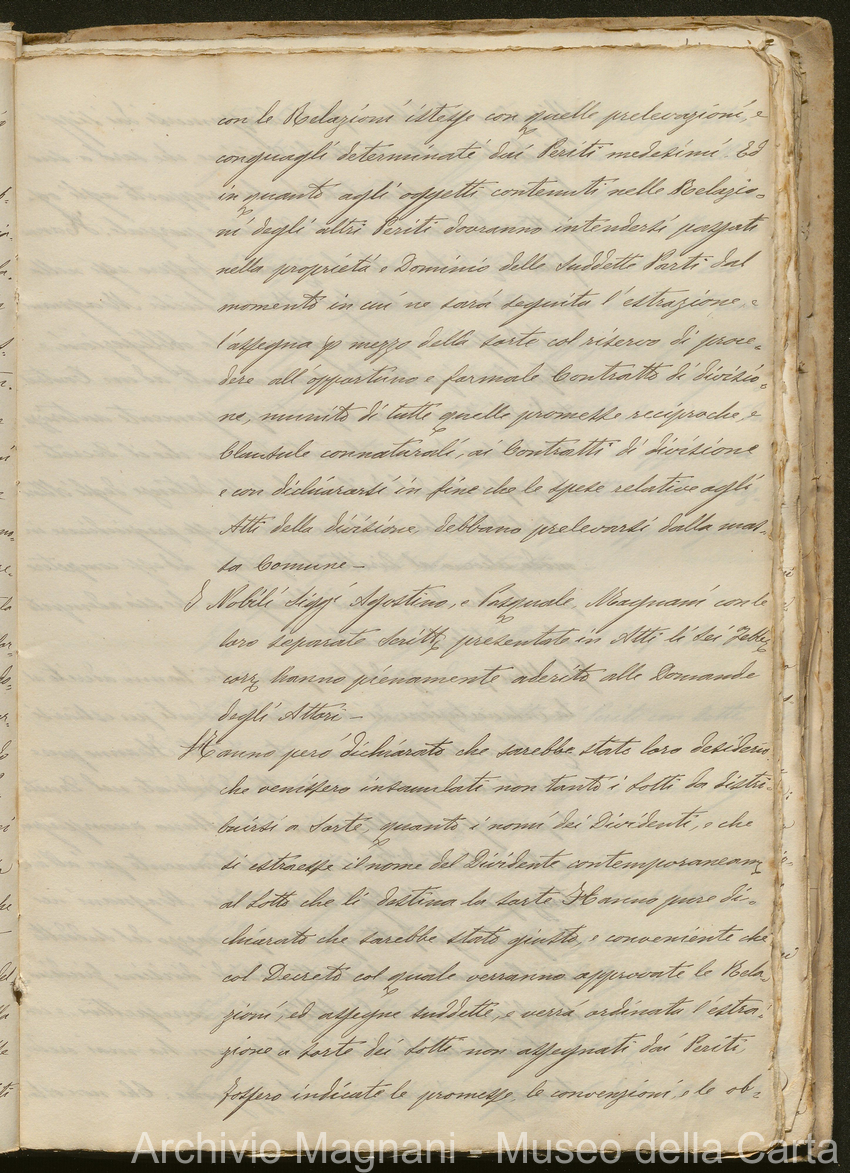 con le Relazioni istesse con quelle prelevazioni, e
conguagli determinate dai Periti medesimi. Ed
in quanto agli oggetti contenuti nelle Relazio=
ni degli altri Periti dovranno intendersi passati
nella proprietà e Dominio delle Suddette Parti dal
momento in cui ne sarà seguita l'estrazione, e
l'assegna p mezzo della sorte col riservo di proce=
dere all'opportuno e formale Contratto di divisio=
ne, munito di tutte quelle promesse reciproche, e
Clausule connaturali, ai Contratti di divisione
e con dichiararsi in fine che le spese relative agli
Atti della divisione, debbano prelevarsi dalla mas=
sa Comune –
I Nobili Sigg.i Agostino, e Pasquale, Magnani con le
loro separate Scritt. presentate in Atti li sei Febb.
corr. hanno pienamente aderito alle Domande
degli Attori –
Hanno però dichiarato che sarebbe stato loro desiderio
che venissero insaculati non tanto i Lotti da distri=
buirsi a Sorte, quanto i nomi dei Dividenti, e che
si estraesse il nome del Dividente contemporaneam.
al Lotto che li destina la sorte Hanno pure di=
chiarato che sarebbe stato giusto, e conveniente che
col Decreto col quale verranno approvate le Rela=
zioni, ed assegne suddette, e verrà ordinata l'estra=
zione a sorte dei Lotti non assegnati dai Periti,
fossero indicate le promesse, le convenzioni, e le ob=
Archivio Magnani - Museo della Carta